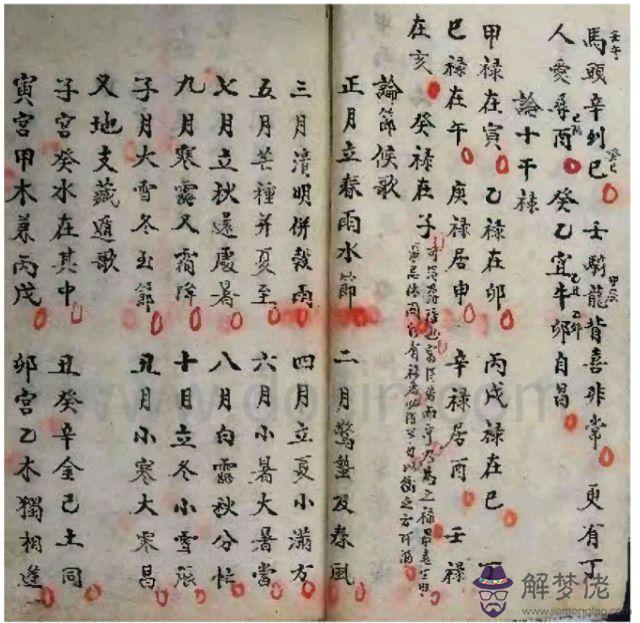 馬頭辛列巳 壬騎龍背喜非常 更有丁
人愛尋酉 癸乙宜牛卯自昌
論十干祿
甲祿在寅 乙祿在卯 丙戊祿在巳 丁
巳祿在午 庚祿居申 辛祿居酉 壬祿
在亥 癸祿在子
論節候歌
正月立春雨水節 二月驚蟄及春風
三月清明併穀雨 四月立夏小滿方
五月芒種并夏至 六月小暑大暑當
七月立秋還處暑 八月白露秋分忙
九月寒露又霜降 十月立冬小雪張
子月大雪冬玉節 丑月小寒大寒昌
又地支藏遁歌
子宮癸水在其中 丑癸辛金己土同
寅宮甲木兼丙戊 卯宮乙木獨相逢
解梦佬
www.jiemenglao.com